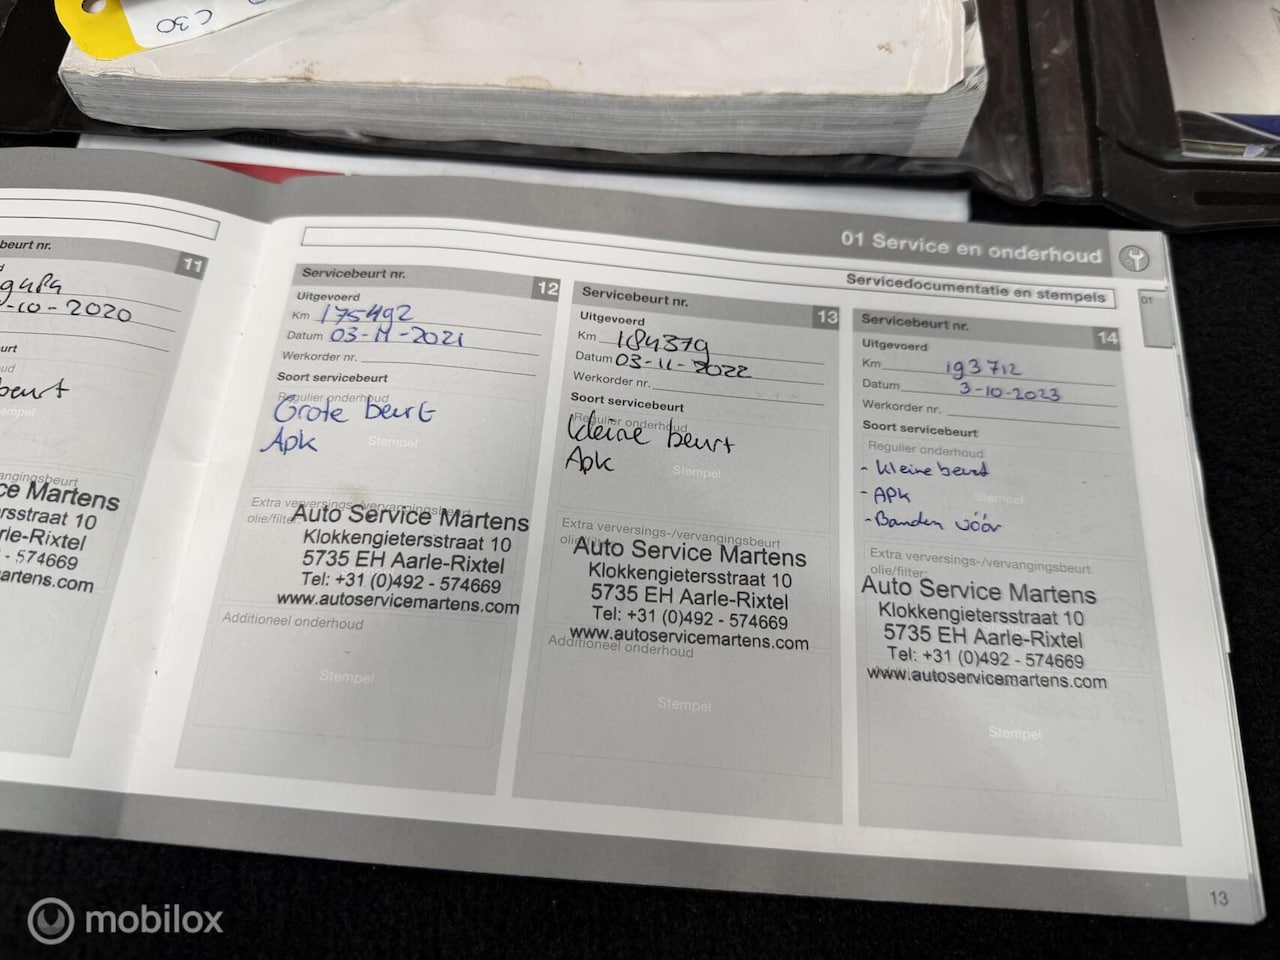 C30
01 Service en onderhoud
Servicedocumentatie en stempels
01
beurt nr.
11
-10-2020
beurt
vangingsbeurt
ce Martens
rsstraat 10
rle-Rixtel
- 574669
artens.com
Servicebeurt nr.
12
Uitgevoerd
Km 175492
Datum 03-11-2021
Werkorder nr.
Soort servicebeurt
Regulier onderhoud
Grote beurt
Apk
Stempel
Extra verversings-/vervangingsbeurt
olie/filter:
Auto Service Martens
Klokkengietersstraat 10
5735 EH Aarle-Rixtel
Tel: +31 (0)492 - 574669
www.autoservicemartens.com
Additioneel onderhoud
Stempel
Servicebeurt nr.
13
Uitgevoerd
Km 184379
Datum 03-11-2022
Werkorder nr.
Soort servicebeurt
Regulier onderhoud
kleine beurt
Apk
Stempel
Extra verversings-/vervangingsbeurt
Auto Service Martens
Klokkengietersstraat 10
5735 EH Aarle-Rixtel
Tel: +31 (0)492 - 574669
www.autoservicemartens.com
Additioneel onderhoud
Stempel
Servicebeurt nr.
14
Uitgevoerd
Km 193712
Datum 3-10-2023
Werkorder nr.
Soort servicebeurt
Regulier onderhoud
- kleine beurt
- APK
- Banden vóór
Stempel
Extra verversings-/vervangingsbeurt
olie/filter:
Auto Service Martens
Klokkengietersstraat 10
5735 EH Aarle-Rixtel
Tel: +31 (0)492 - 574669
www.autoservicemartens.com
Stempel
13
mobilox